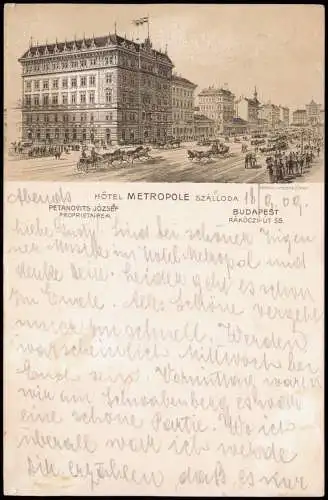 HÔTEL METROPOLE SZÁLLODA
PETANOVITS JÓZSEF
PROPRIETAIREM.
BUDAPEST
RÁKÓCZI-ÚT 58.
Abends 18/9 09.
Sind bei schöner Zigeu
ner Musik im Hotel Metropol und
denke Dein. Leider geht es schon
zu Ende. Alles Schöne vergeht
nur zu schnell. Werden
warscheinlich Mittwoch bei
Euch sein. Vormittag waren
wir am Schwabenberg, es war
eine schöne Partie. Wo ich
überall war ich werde
Dir erzählen, daß es nur